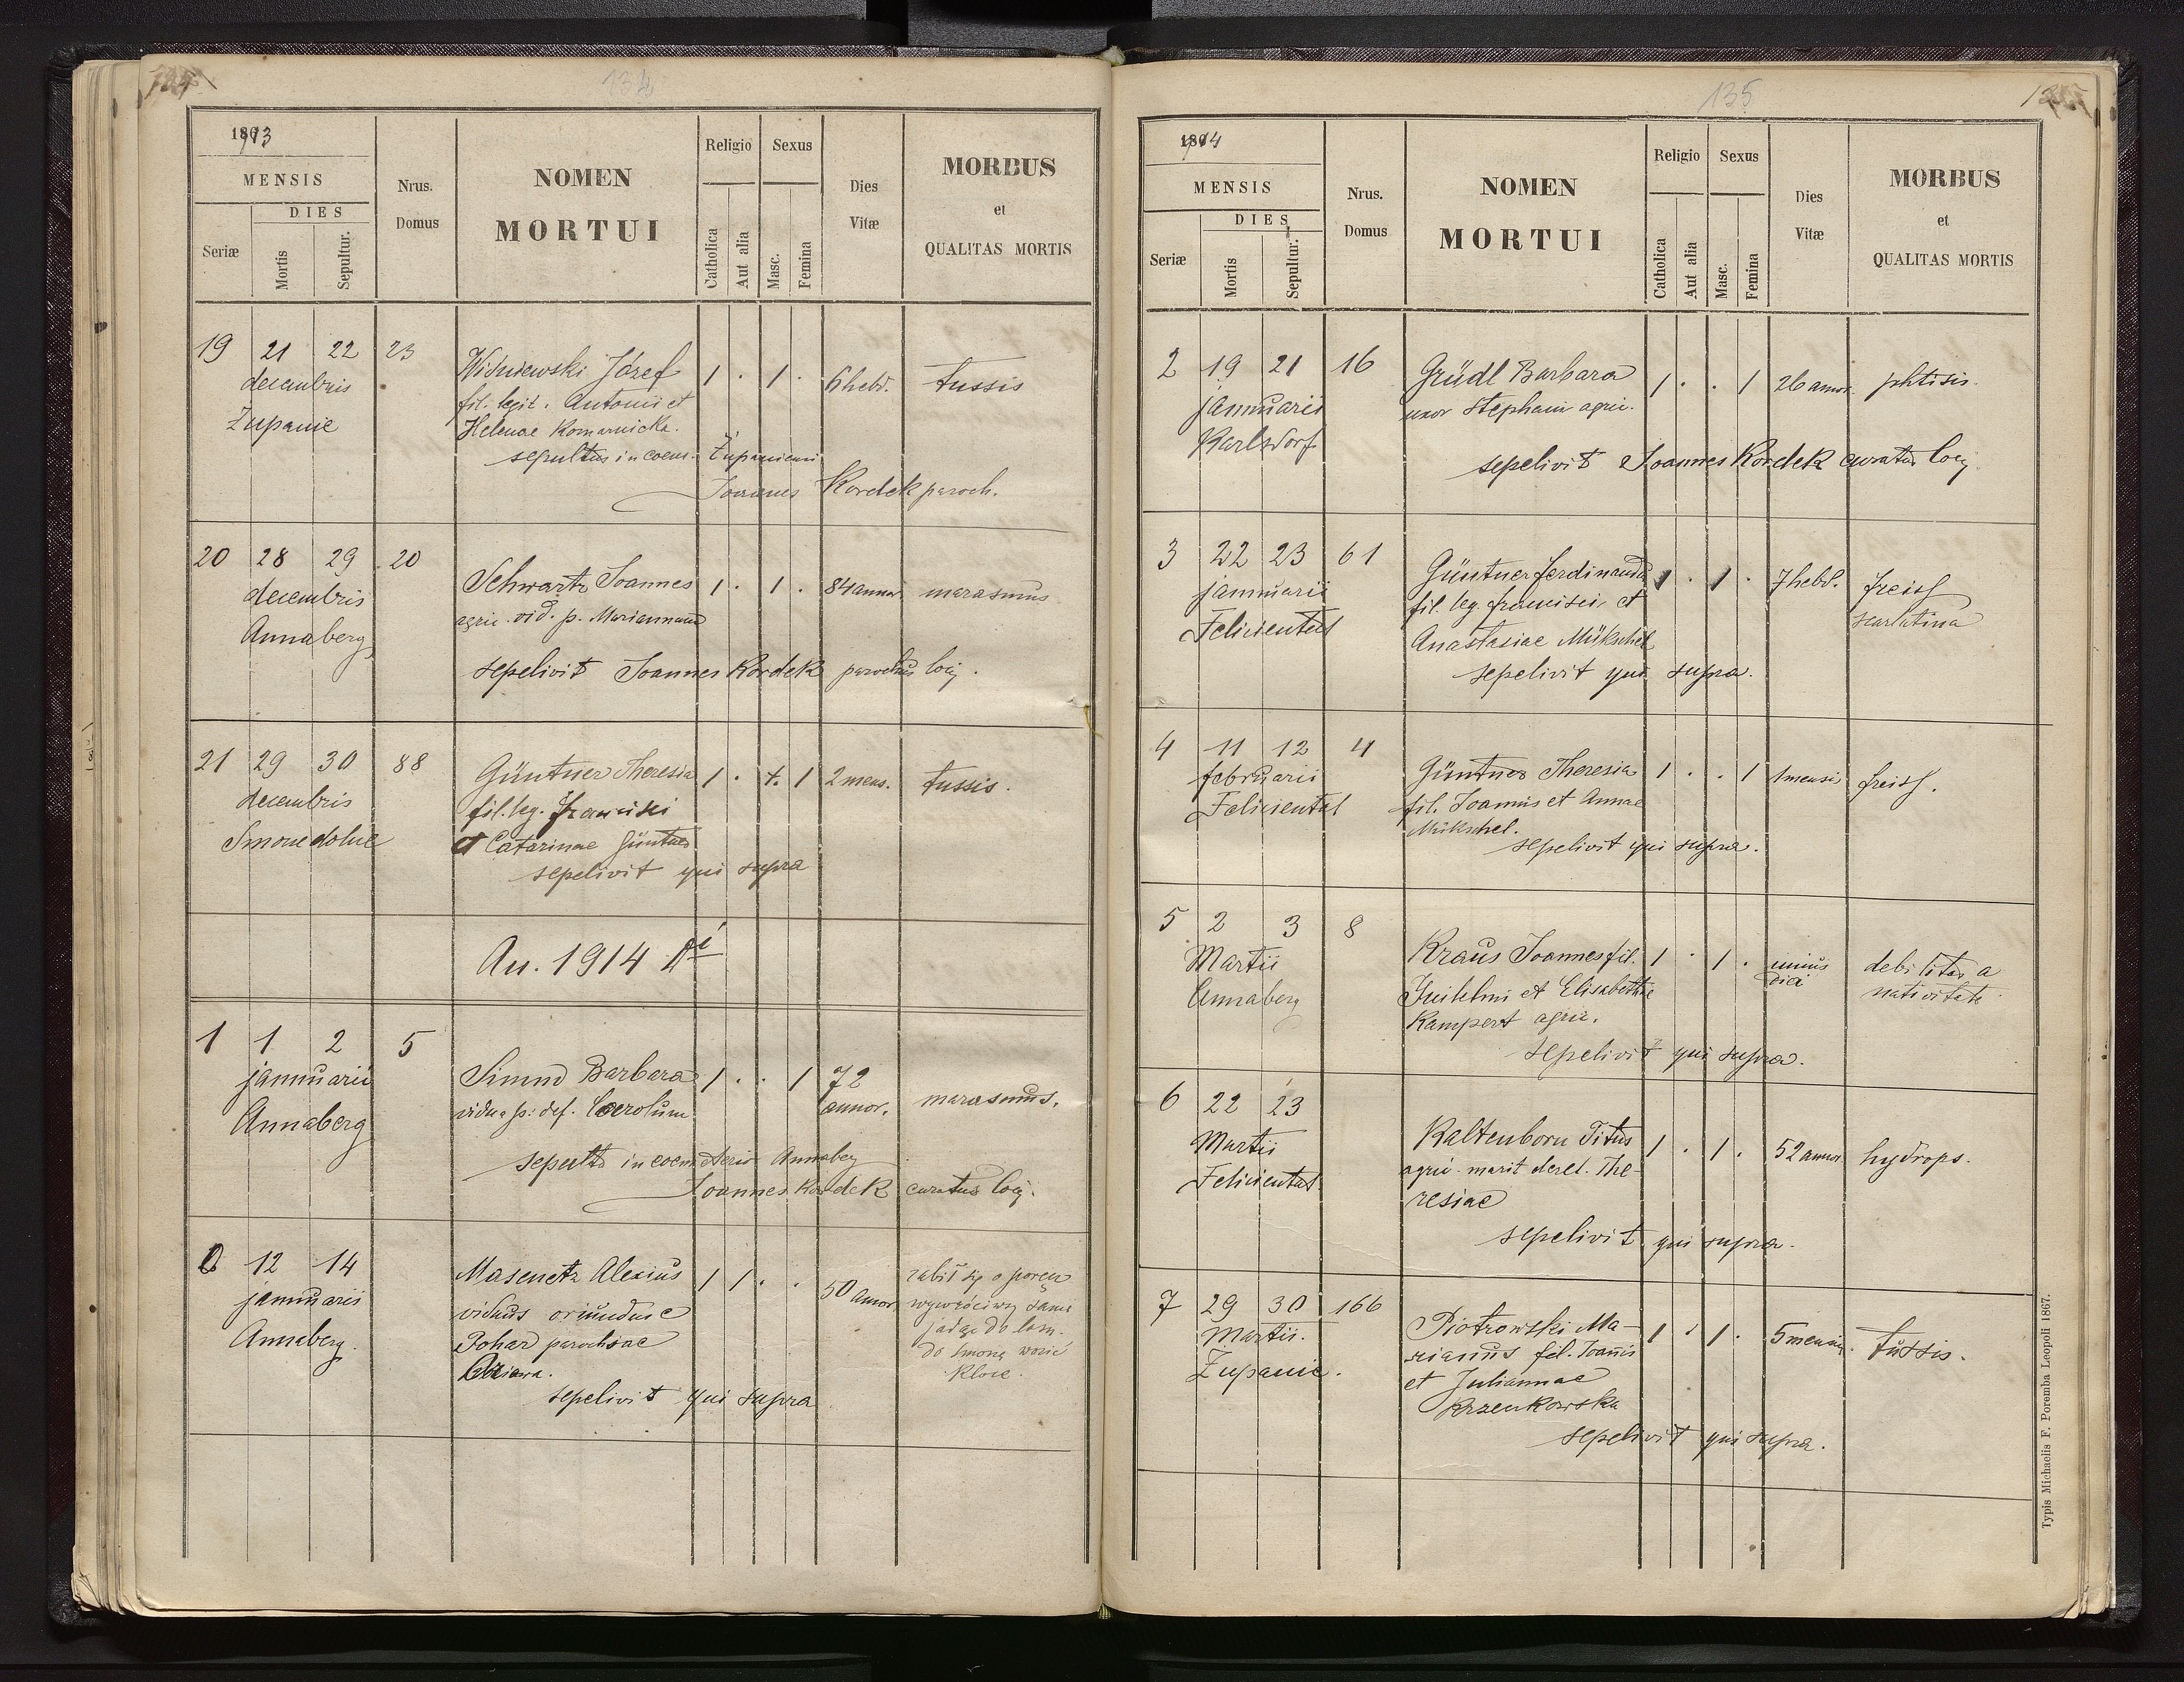 134
1913
MENSIS
DIES
Seriæ
Mortis
Sepultur.
Nrus.
Domus
NOMEN
MORTUI
Religio
Sexus
Catholica
Aut alia
Masc.
Femina
Dies
Vitæ
MORBUS
et
QUALITAS MORTIS
19 21 22 23 Wiśniewski Józef 1 . 1 . 6 hebd. tussis
decembris fil. legit. Antonii et
Żupanie Helenae Komarnicka.
sepultus in coem. Żupaniensi
Joannes Kordek paroch.
20 28 29 20 Schwartz Joannes 1 . 1 . 84 annor. marasmus
decembris agric. vid. p. Mariannam
Annaberg
sepelivit Joannes Kordek parochus loci.
21 29 30 88 Güntner Theresia 1 . . 1 2 mens. tussis.
decembris fil. leg. Francisci
Smorze dolne et Catarinae Güntner
sepelivit qui supra
An. 1914
1 1 2 5 Simmd Barbara 1 . . 1 72
januarii vidua p. def. Carolum annor. marasmus.
Annaberg
sepulta in coemeterio Annaberg
Joannes Kordek curatus loci.
12 14 Masenetz Alexius 1 1 . . 50 annor.
januarii viduus oriundus e
Annaberg. Pohar parochiae
sepelivit qui supra
zabił się
wywróciwszy sanie
jadąc do
do Smorza wozić
kloce.
135
1914
MENSIS
DIES
Seriæ
Mortis
Sepultur.
Nrus.
Domus
NOMEN
MORTUI
Religio
Sexus
Catholica
Aut alia
Masc.
Femina
Dies
Vitæ
MORBUS
et
QUALITAS MORTIS
2 19 21 16 Grüdl Barbara 1 . . 1 26 annor. phtisis.
januarii uxor Stephani agric.
Karlsdorf
sepelivit Joannes Kordek curatus loci.
3 22 23 61 Güntner Ferdinandus 1 . 1 . 7 hebd. freisf
januarii fil. leg. Francisci et scarlatina
Felicientał Anastasiae Mükschel
sepelivit qui supra.
4 11 12 4 Güntner Theresia 1 . . 1 1 mensis freisf.
februarii fil. Joannis et Annae
Felicientał Mükschel.
sepelivit qui supra.
5 2 3 8 Kraus Joannes fil. 1 . 1 . unius debilitas a
Martii Guilelmi et Elisabethae diei nativitate.
Annaberg Kampert agric.
sepelivit qui supra.
6 22 23 Kaltenborn Titus 1 . 1 . 52 annor. hydrops.
Martii agric. marit. derel. The-
Felicientał resiae
sepelivit qui supra.
7 29 30 166 Piotrowski Ma- 1 . 1 . 5 mensium. tussis.
Martii. rianus fil. Joannis
Żupanie. et Juliannae
Krzenkowska
sepelivit qui supra.
Typis Michaelis F. Poremba Leopoli 1867.